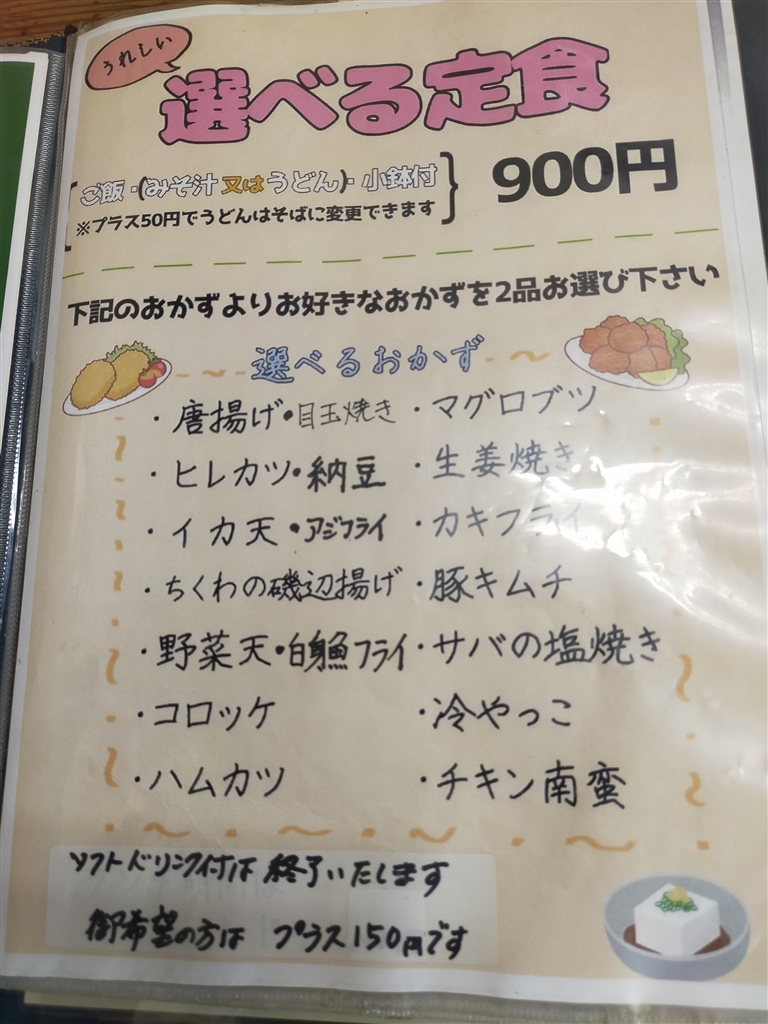 うれしい
選べる定食
ご飯・(みそ汁又はうどん)・小鉢付
※プラス50円でうどんはそばに変更できます
900円
下記のおかずよりお好きなおかずを2品お選び下さい
選べるおかず
・唐揚げ・目玉焼き ・マグロブツ
・ヒレカツ・納豆 ・生姜焼き
・イカ天・アジフライ ・カキフライ
・ちくわの磯辺揚げ ・豚キムチ
・野菜天・白身魚フライ ・サバの塩焼き
・コロッケ ・冷やっこ
・ハムカツ ・チキン南蛮
ソフトドリンク付は終了いたします
御希望の方は プラス150円です